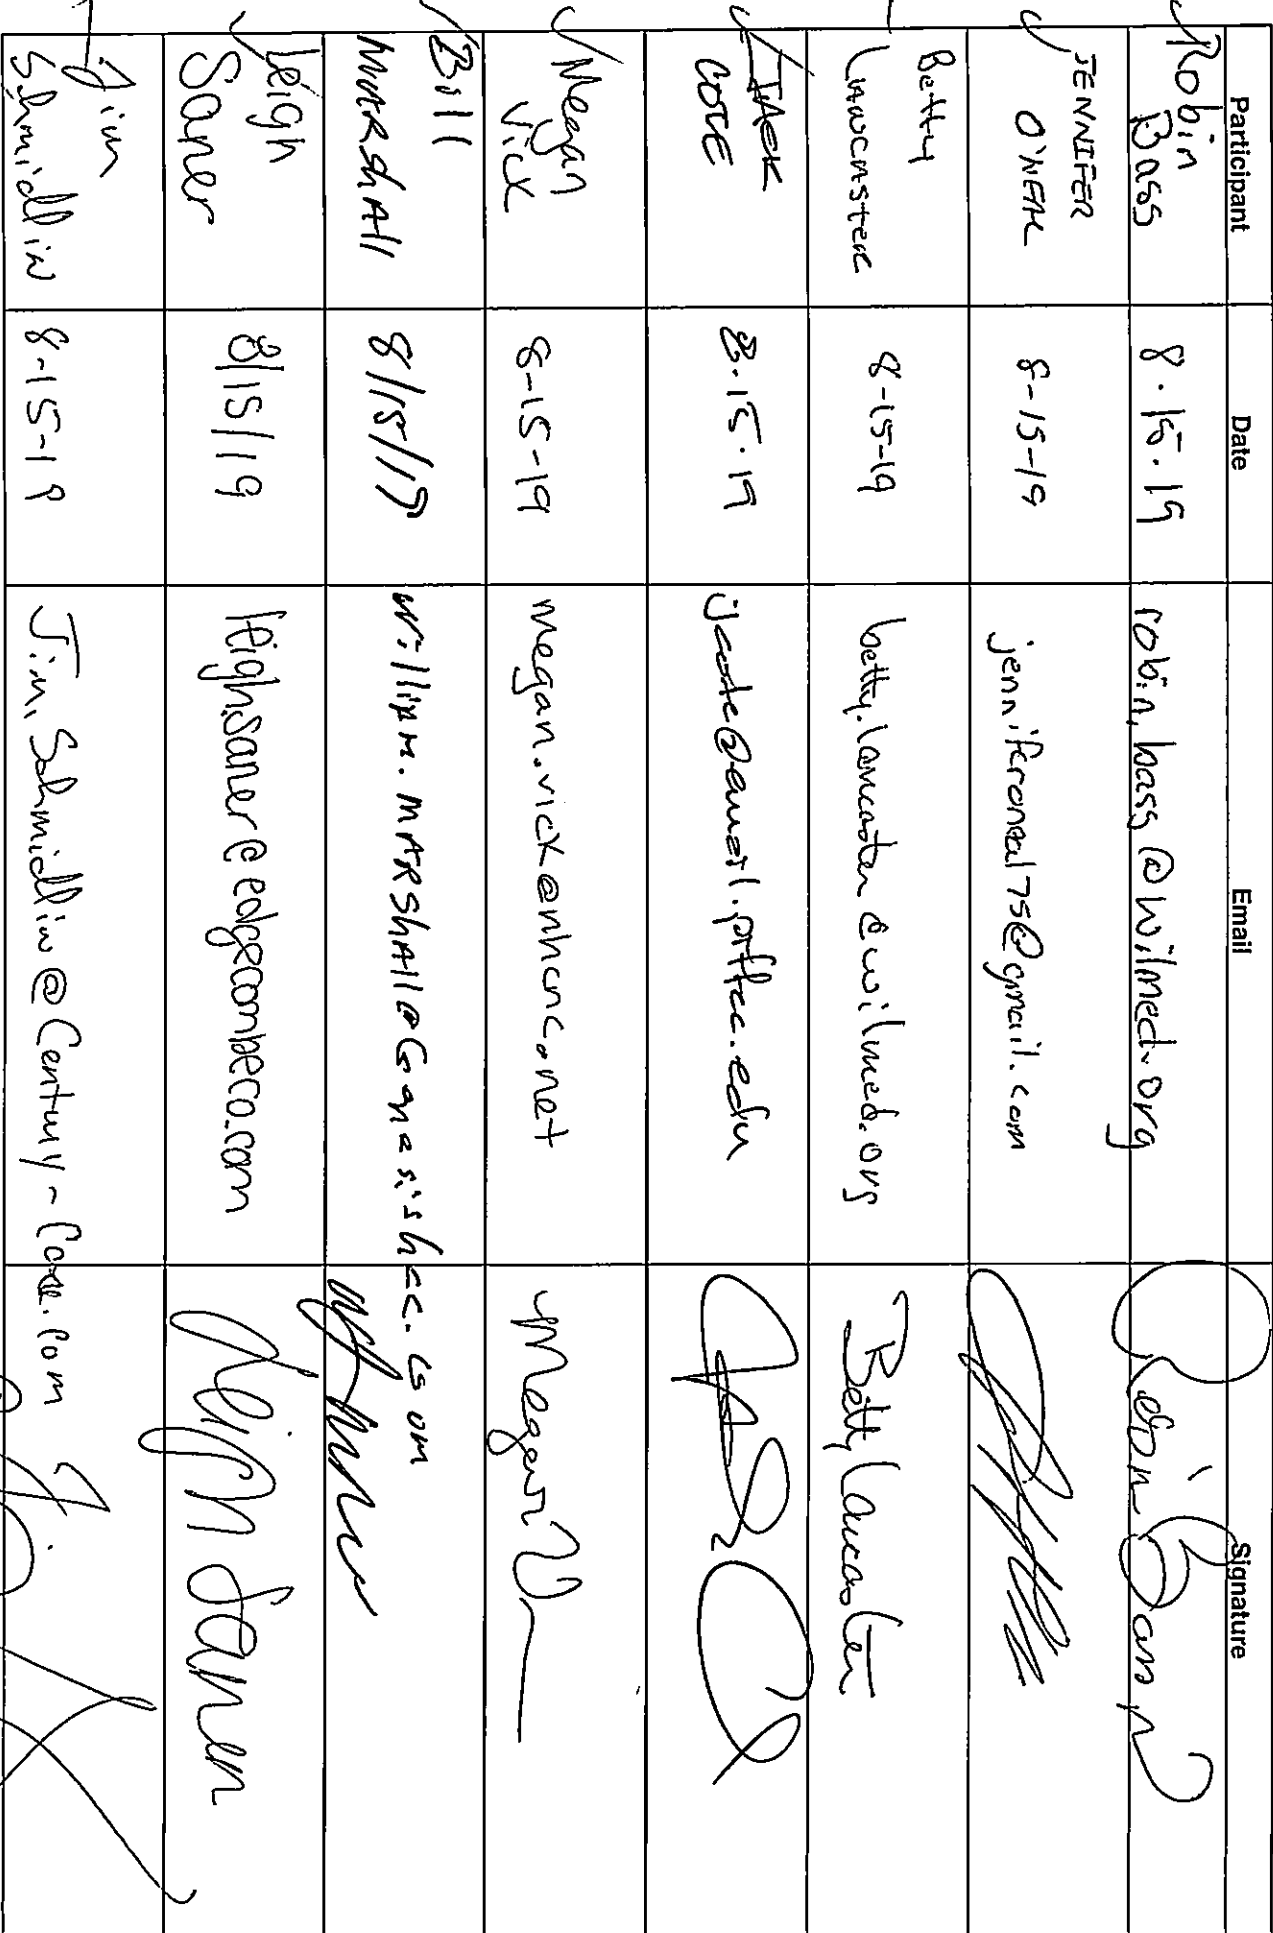 Participant Date Email Signature
Robin Bass 8.15.19 robin.bass@wilmed.org Robin Bass
JENNIFER O'NEAL 8-15-19 jenniferoneal75@gmail.com
Betty Lancaster 8-15-19 betty.lancaster@wilmed.org Betty Lancaster
JACK COTE 8.15.19
Megan Vick 8-15-19 megan.vick@nhcnc.net Megan V
Bill MARSHAll 8/15/19 William.MARSHAll@Genesishcc.com
Leigh Saner 8/15/19 leigh.saner@edgecombeco.com Leigh Saner
Jim Schmidlin 8-15-19 Jim.Schmidlin@Century-Care.com